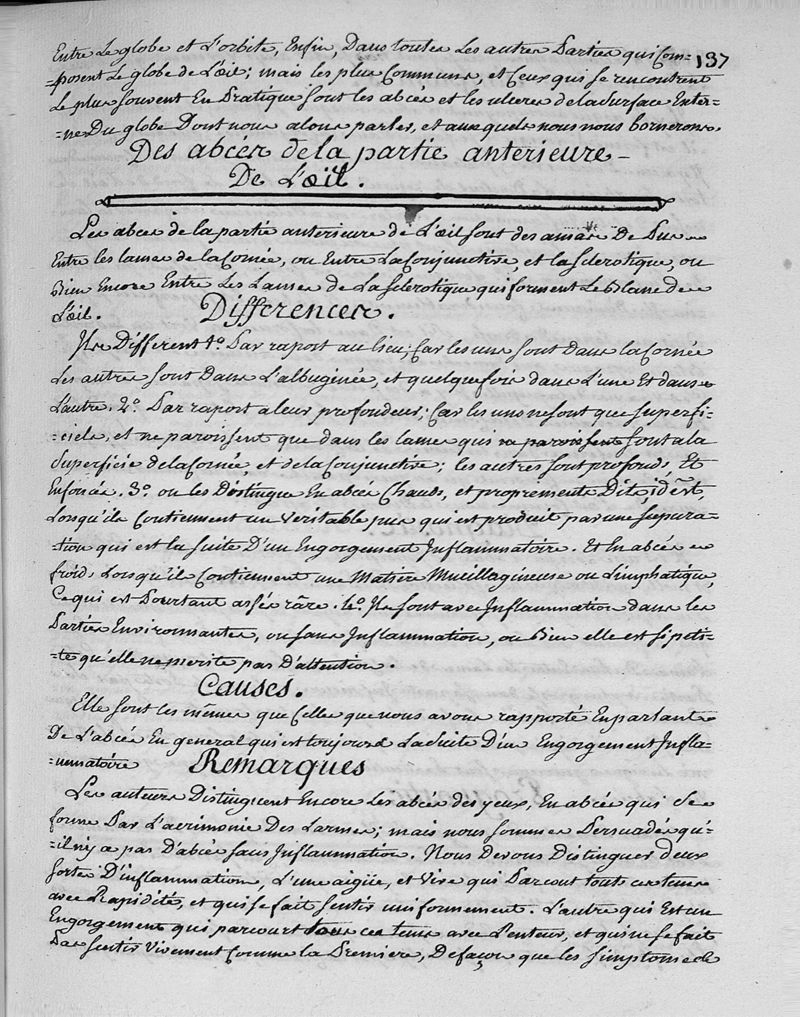 137
Entre Le globe et L'orbite, Enfin, Dans toutes Les autres Parties qui Com-
-posent Le globe de L'œil; mais les plus Communs, et Ceux qui se rencontrent
Le plus souvent En Pratique sont les abcés et les ulceres de la Surface Exter-
-ne Du globe Dont nous alons parler, et aux quels nous nous bornerons.
Des abcès de la partie anterieure
De L'œil.
Les abcés de la partie anterieure de L'œil sont des amas De Pus
Entre les lames de la Cornée, ou Entre La Conjunctive, et la Sclerotique, ou
Bien Encore Entre Les Lames de La Sclerotique qui forment Le Blanc de
L'œil. Differences.
Ils Different 1.º Par raport au lieu; Car les uns sont Dans la Cornée
Les autres sont Dans L'albuginée, et quelque fois dans L'une Et dans
L'autre. 2.º Par raport a leur profondeur; Car les uns ne sont que superfi-
-ciels, et ne paroissent que dans les lames qui sont a la
Superficie de la Cornée, et de la Conjunctive; les autres sont profonds, Et
Enfoncés. 3.º on les Distingue En abcés Chauds, et proprements Dits, idest,
Lorsqu'ils Contiennent un veritable pus qui est produit par une supura-
-tion qui est la suite D'un Engorgement Inflammatoire. Et En abcés
froids Lorsqu'ils Contiennent une Matiere Mucillagineuse ou Limphatique,
Ce qui est Pourtant assés râre. 4.º Ils sont avec Inflammation dans les
Parties Environnantes, ou sans Inflammation, ou Bien elle est si peti-
-te qu'elle ne merite pas D'attention.
Causes.
Elle sont les mêmes que Celles que nous avons rapporté En parlant
De L'abcés En general qui est toujours La suite D'un Engorgement Infla-
-mmatoire Remarques
Les auteurs Distinguent Encore Les abcés des yeux, En abcés qui se
forme Par L'acrimonie Des Larmes; mais nous sommes Persuadés qu'-
-il n'y a pas D'abcés sans Inflammation. Nous Devons Distinguer deux
sortes D'inflammation, L'une aigüe, et Vive qui Parcourt touts ces tems
avec Rapidité, et qui se fait sentir uniformement. L'autre qui Est un
Engorgement qui parcourt tous ces tems avec Lenteur, et qui ne se fait
Pas sentir Vivement Comme la Premiere, De façon que les simptomes de